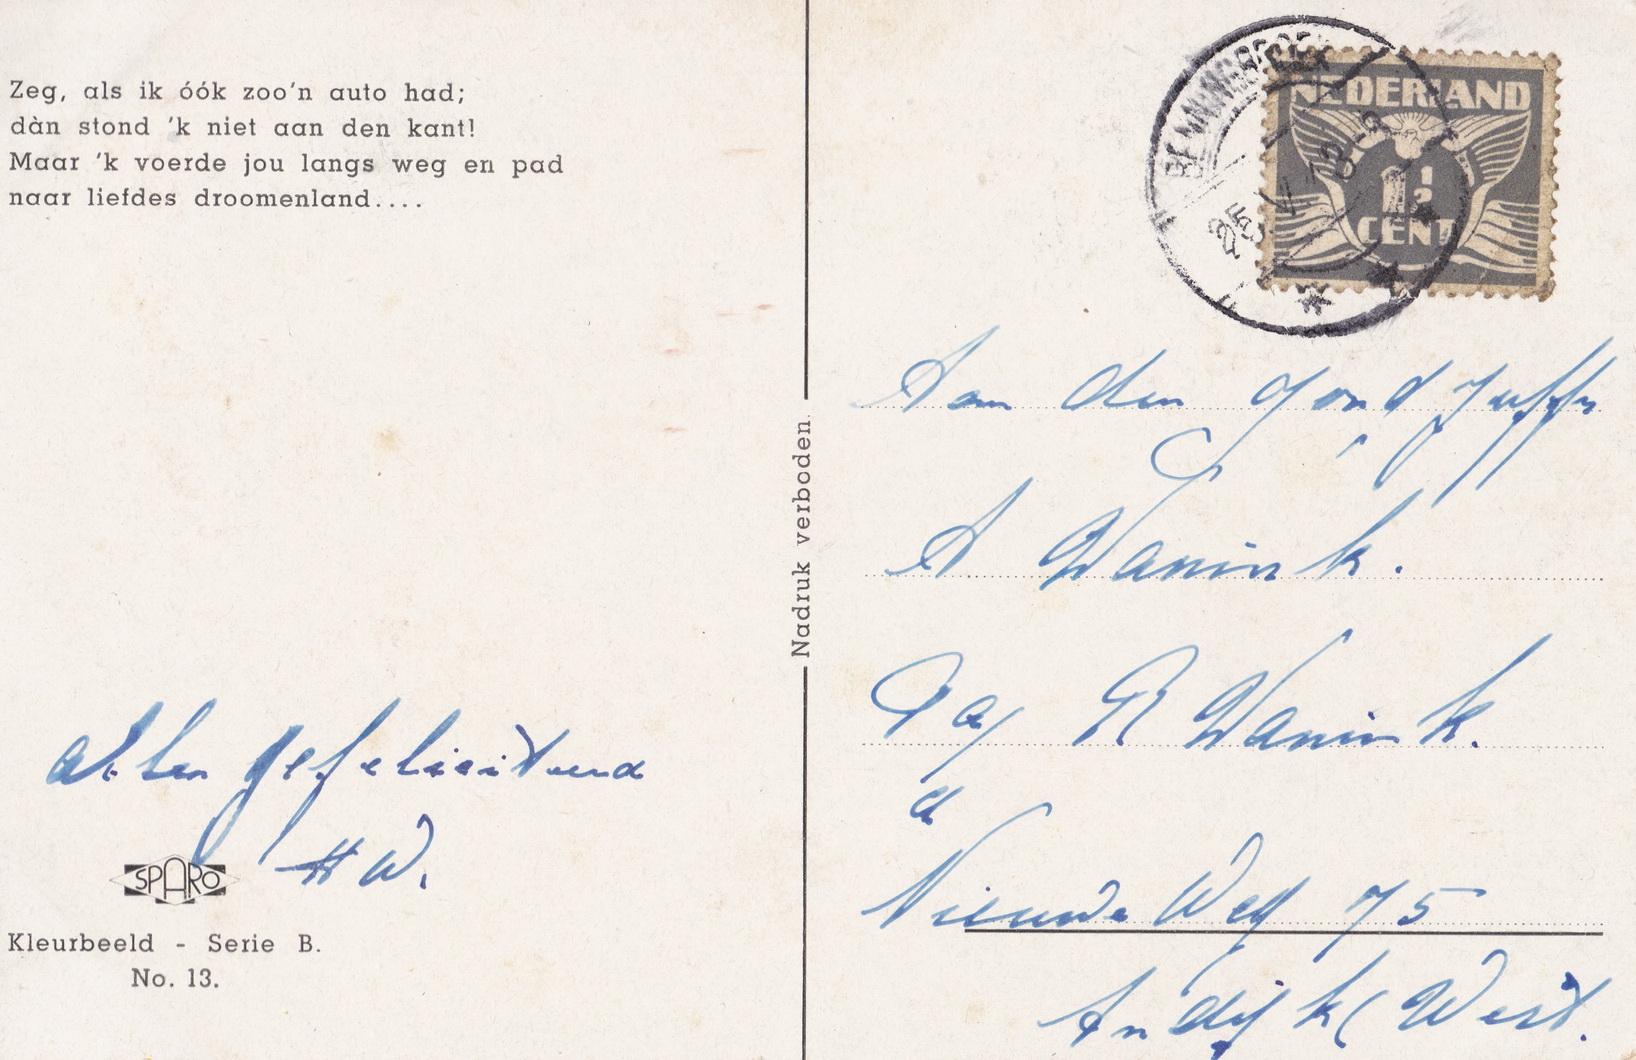 Zeg, als ik óók zoo'n auto had;
dàn stond 'k niet aan den kant!
Maar 'k voerde jou langs weg en pad
naar liefdes droomenland....
allen gefeliciteerd
H W.
SPARO
Kleurbeeld - Serie B.
No. 13.
Nadruk verboden
NEDERLAND
1½
CENT
25
Aan den Jond Juffr
A Wanink.
R Wanink.
Nieuwe Weg 75
Andijk (West.